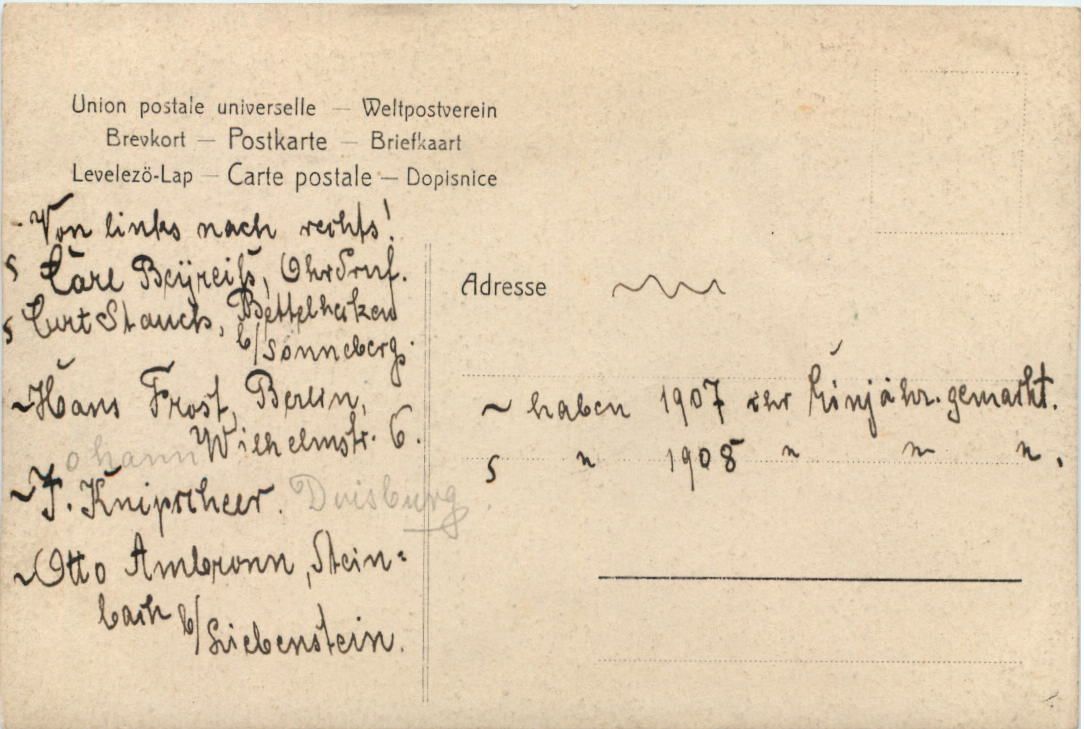 Union postale universelle — Weltpostverein
Brevkort — Postkarte — Briefkaart
Levelezö-Lap — Carte postale — Dopisnice
Von links nach rechts!
s Carl Beÿreiß, Ohrdruf.
s Curt Stauch, Bettelhecken
b/Sonneberg.
~ Hans Frost, Berlin,
Wilhelmstr. 6.
ohann
~ J. Knipscheer. Duisburg
~ Otto Ambronn, Stein=
bach b/Liebenstein.
Adresse
~ haben 1907 ihr Einjähr. gemacht.
s " 1908 " " ".